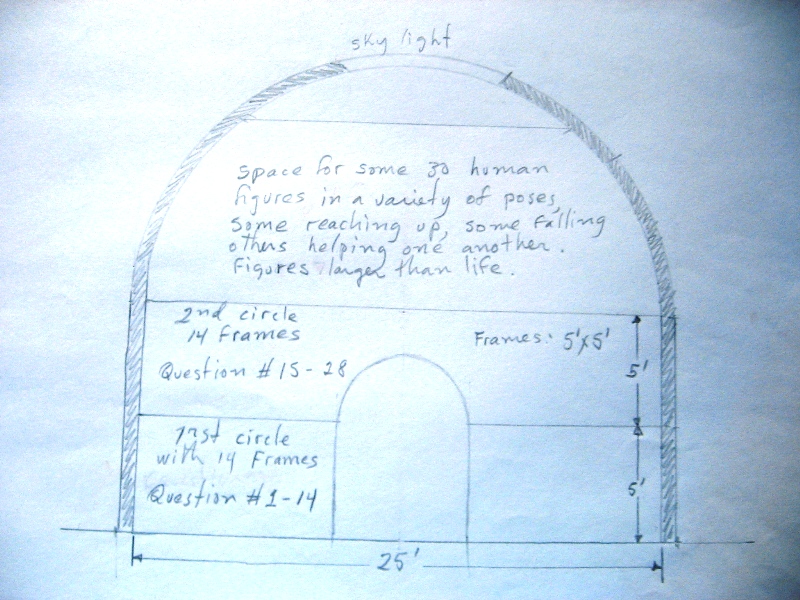 sky light
Space for some 30 human
figures in a variety of poses,
Some reaching up, some falling
others helping one another.
Figures larger than life.
2nd circle
14 frames
Question # 15-28
Frames: 5'x5'
5'
1rst circle
with 14 Frames
Question #1-14
5'
25'